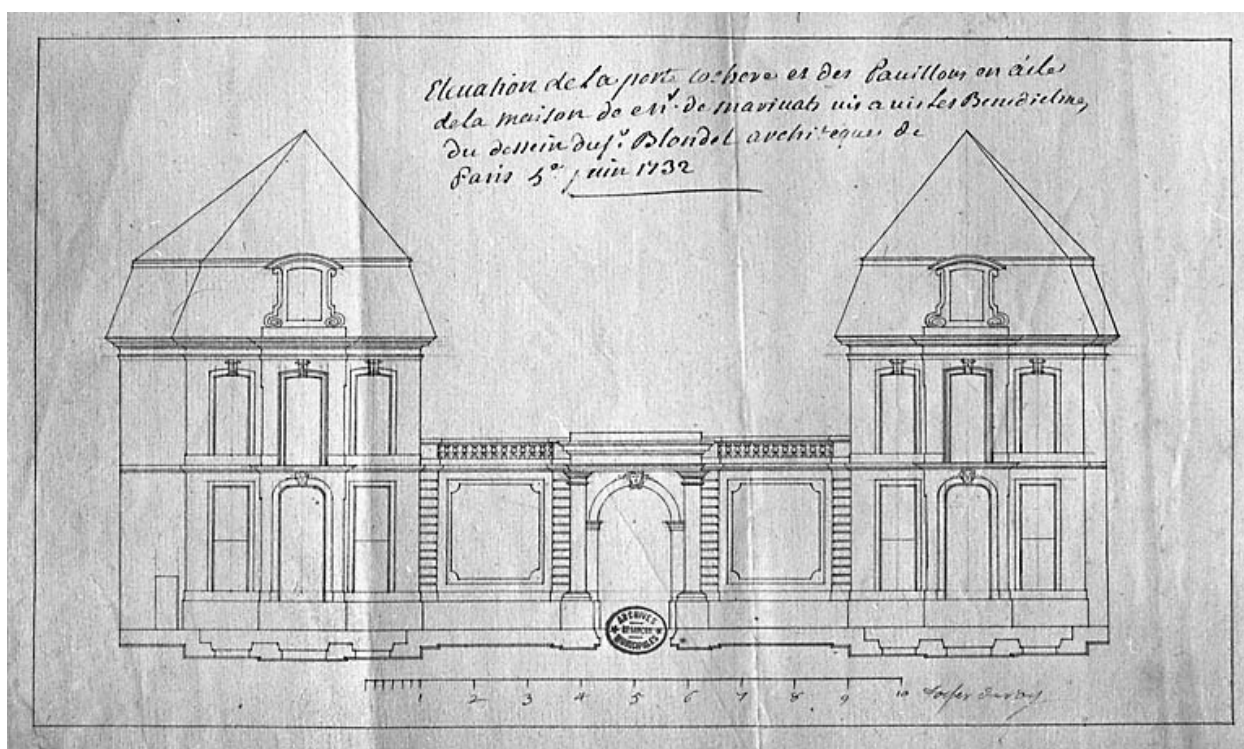 Elevation de la porte cochere et des Pavillons en aile
de la maison de Mr. de marivats vis a vis Les Benedictins,
du dessein du Sr. Blondel architeque de
Paris 4e juin 1732
ARCHIVES
BESANÇON
MUNICIPALES
1 2 3 4 5 6 7 8 9 10